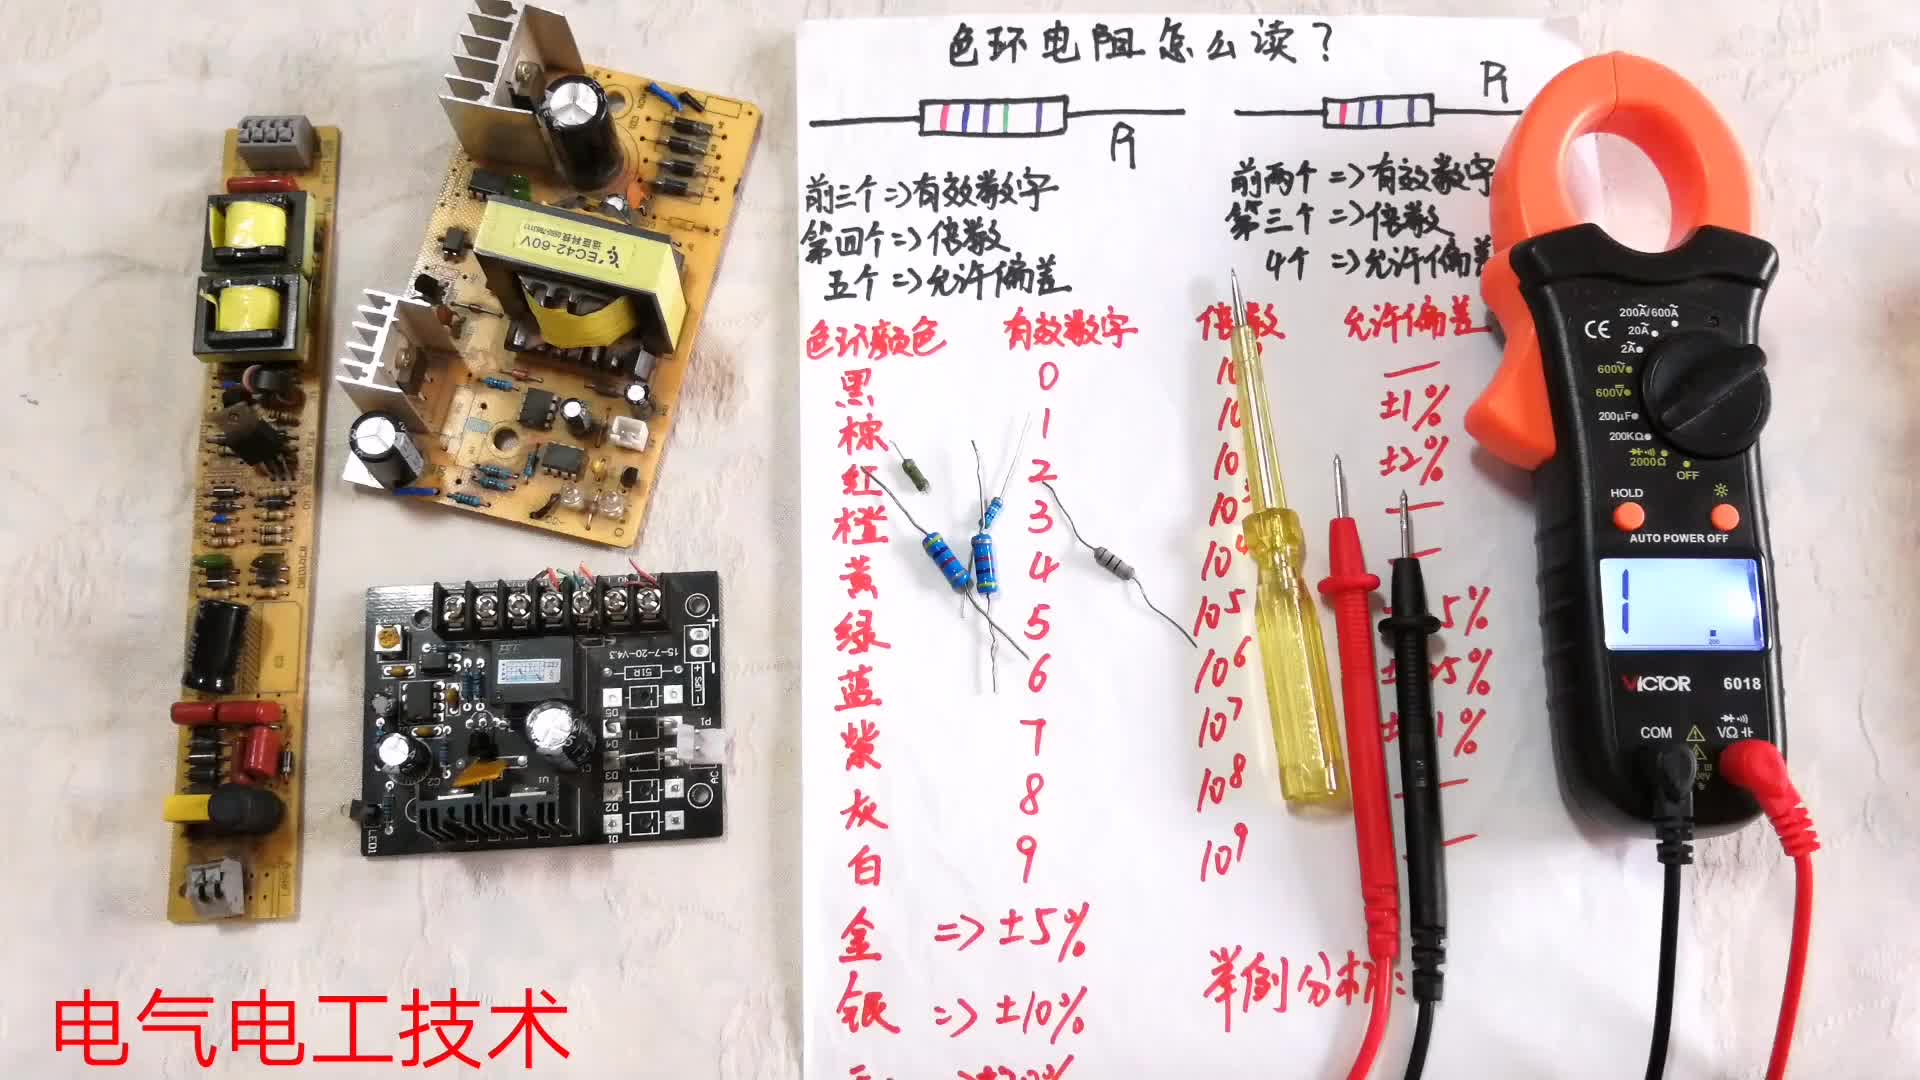 色环电阻怎么读？
R
R
前三个=>有效数字
第四个=>倍数
五个=>允许偏差
前两个=>有效数字
第三个=>倍数
4个=>允许偏差
色环颜色 有效数字 倍数 允许偏差
黑 0 —
棕 1 ±1%
红 2 ±2%
橙 3 —
黄 4 10⁴ —
绿 5 10⁵ 5%
蓝 6 10⁶
紫 7 10⁷
灰 8 10⁸ —
白 9 10⁹ —
金 => ±5%
银 => ±10%
举例分析:
电气电工技术
EC42-60V
15-7-20-V4.3
51R
UPS
P1
AC
D5
D4
D3
D2
D1
LED1
CE
200A/600A
20A
2A
600V
600V
200μF
200KΩ
2000Ω
OFF
HOLD
AUTO POWER OFF
1
200
VICTOR 6018
COM VΩ